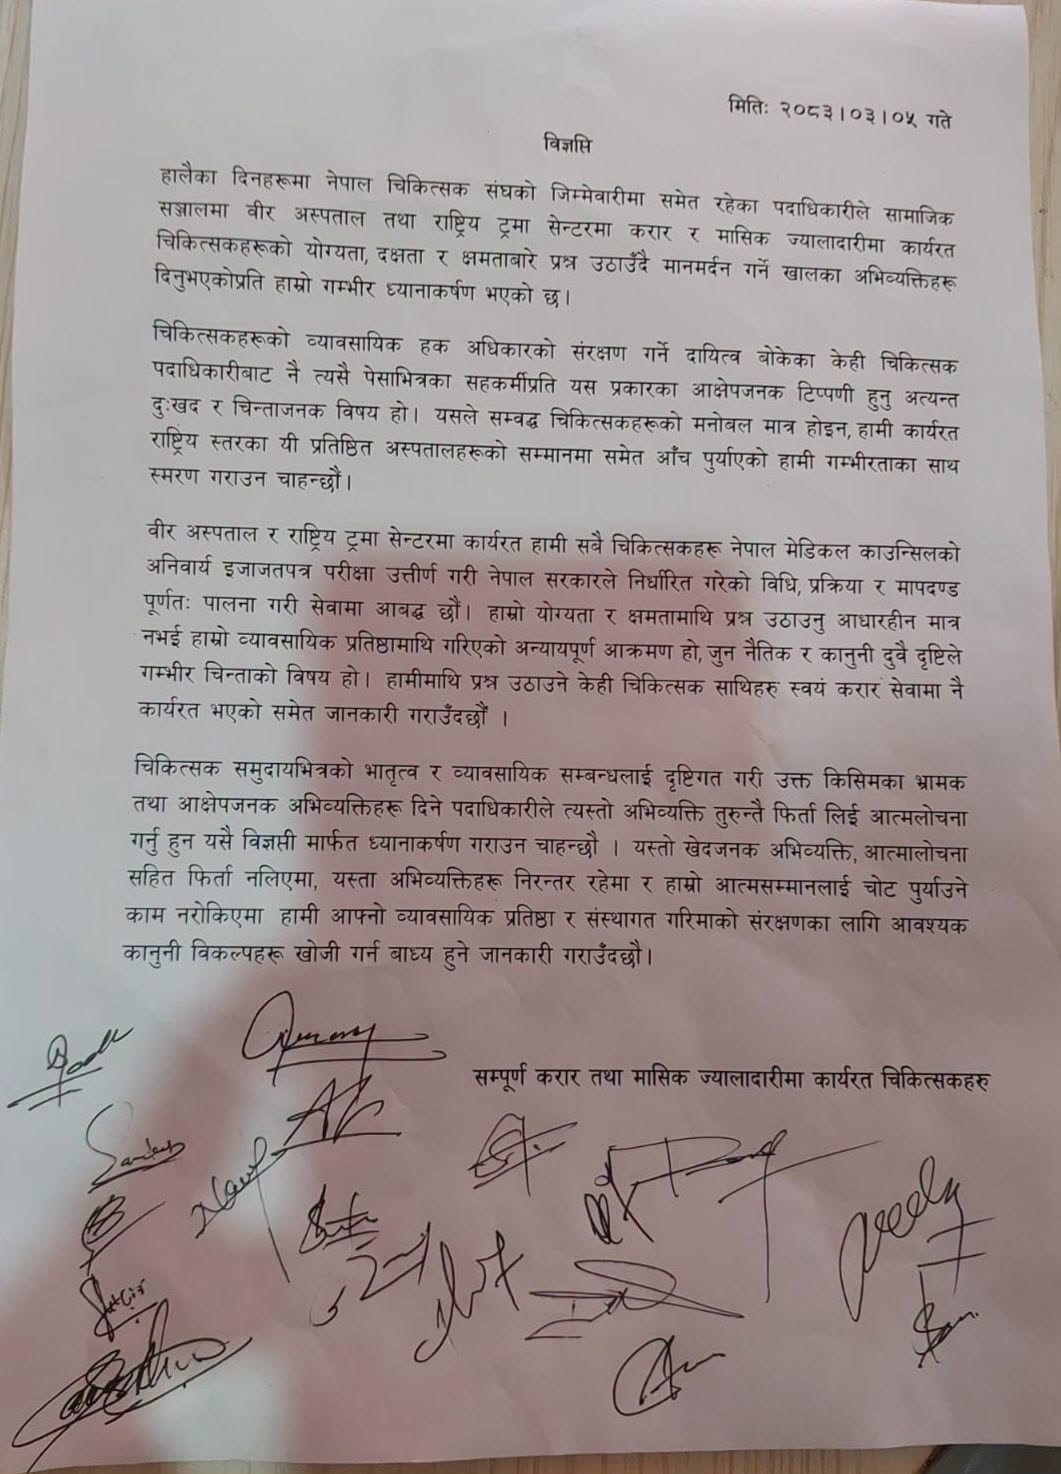 मितिः २०८३।०३।०५ गते
विज्ञप्ति
हालैका दिनहरूमा नेपाल चिकित्सक संघको जिम्मेवारीमा समेत रहेका पदाधिकारीले सामाजिक
सञ्जालमा वीर अस्पताल तथा राष्ट्रिय ट्रमा सेन्टरमा करार र मासिक ज्यालादारीमा कार्यरत
चिकित्सकहरूको योग्यता, दक्षता र क्षमताबारे प्रश्न उठाउँदै मानमर्दन गर्ने खालका अभिव्यक्तिहरू
दिनुभएकोप्रति हाम्रो गम्भीर ध्यानाकर्षण भएको छ।
चिकित्सकहरूको व्यावसायिक हक अधिकारको संरक्षण गर्ने दायित्व बोकेका केही चिकित्सक
पदाधिकारीबाट नै त्यसै पेसाभित्रका सहकर्मीप्रति यस प्रकारका आक्षेपजनक टिप्पणी हुनु अत्यन्त
दुःखद र चिन्ताजनक विषय हो। यसले सम्वद्ध चिकित्सकहरूको मनोबल मात्र होइन, हामी कार्यरत
राष्ट्रिय स्तरका यी प्रतिष्ठित अस्पतालहरूको सम्मानमा समेत आँच पुर्याएको हामी गम्भीरताका साथ
स्मरण गराउन चाहन्छौं।
वीर अस्पताल र राष्ट्रिय ट्रमा सेन्टरमा कार्यरत हामी सबै चिकित्सकहरू नेपाल मेडिकल काउन्सिलको
अनिवार्य इजाजतपत्र परीक्षा उत्तीर्ण गरी नेपाल सरकारले निर्धारित गरेको विधि, प्रक्रिया र मापदण्ड
पूर्णतः पालना गरी सेवामा आबद्ध छौं। हाम्रो योग्यता र क्षमतामाथि प्रश्न उठाउनु आधारहीन मात्र
नभई हाम्रो व्यावसायिक प्रतिष्ठामाथि गरिएको अन्यायपूर्ण आक्रमण हो, जुन नैतिक र कानुनी दुवै दृष्टिले
गम्भीर चिन्ताको विषय हो। हामीमाथि प्रश्न उठाउने केही चिकित्सक साथिहरु स्वयं करार सेवामा नै
कार्यरत भएको समेत जानकारी गराउँदछौं ।
चिकित्सक समुदायभित्रको भातृत्व र व्यावसायिक सम्बन्धलाई दृष्टिगत गरी उक्त किसिमका भ्रामक
तथा आक्षेपजनक अभिव्यक्तिहरू दिने पदाधिकारीले त्यस्तो अभिव्यक्ति तुरुन्तै फिर्ता लिई आत्मलोचना
गर्नु हुन यसै विज्ञप्ती मार्फत ध्यानाकर्षण गराउन चाहन्छौ । यस्तो खेदजनक अभिव्यक्ति, आत्मालोचना
सहित फिर्ता नलिएमा, यस्ता अभिव्यक्तिहरू निरन्तर रहेमा र हाम्रो आत्मसम्मानलाई चोट पुर्याउने
काम नरोकिएमा हामी आफ्नो व्यावसायिक प्रतिष्ठा र संस्थागत गरिमाको संरक्षणका लागि आवश्यक
कानुनी विकल्पहरू खोजी गर्न बाध्य हुने जानकारी गराउँदछौ।
सम्पूर्ण करार तथा मासिक ज्यालादारीमा कार्यरत चिकित्सकहरु